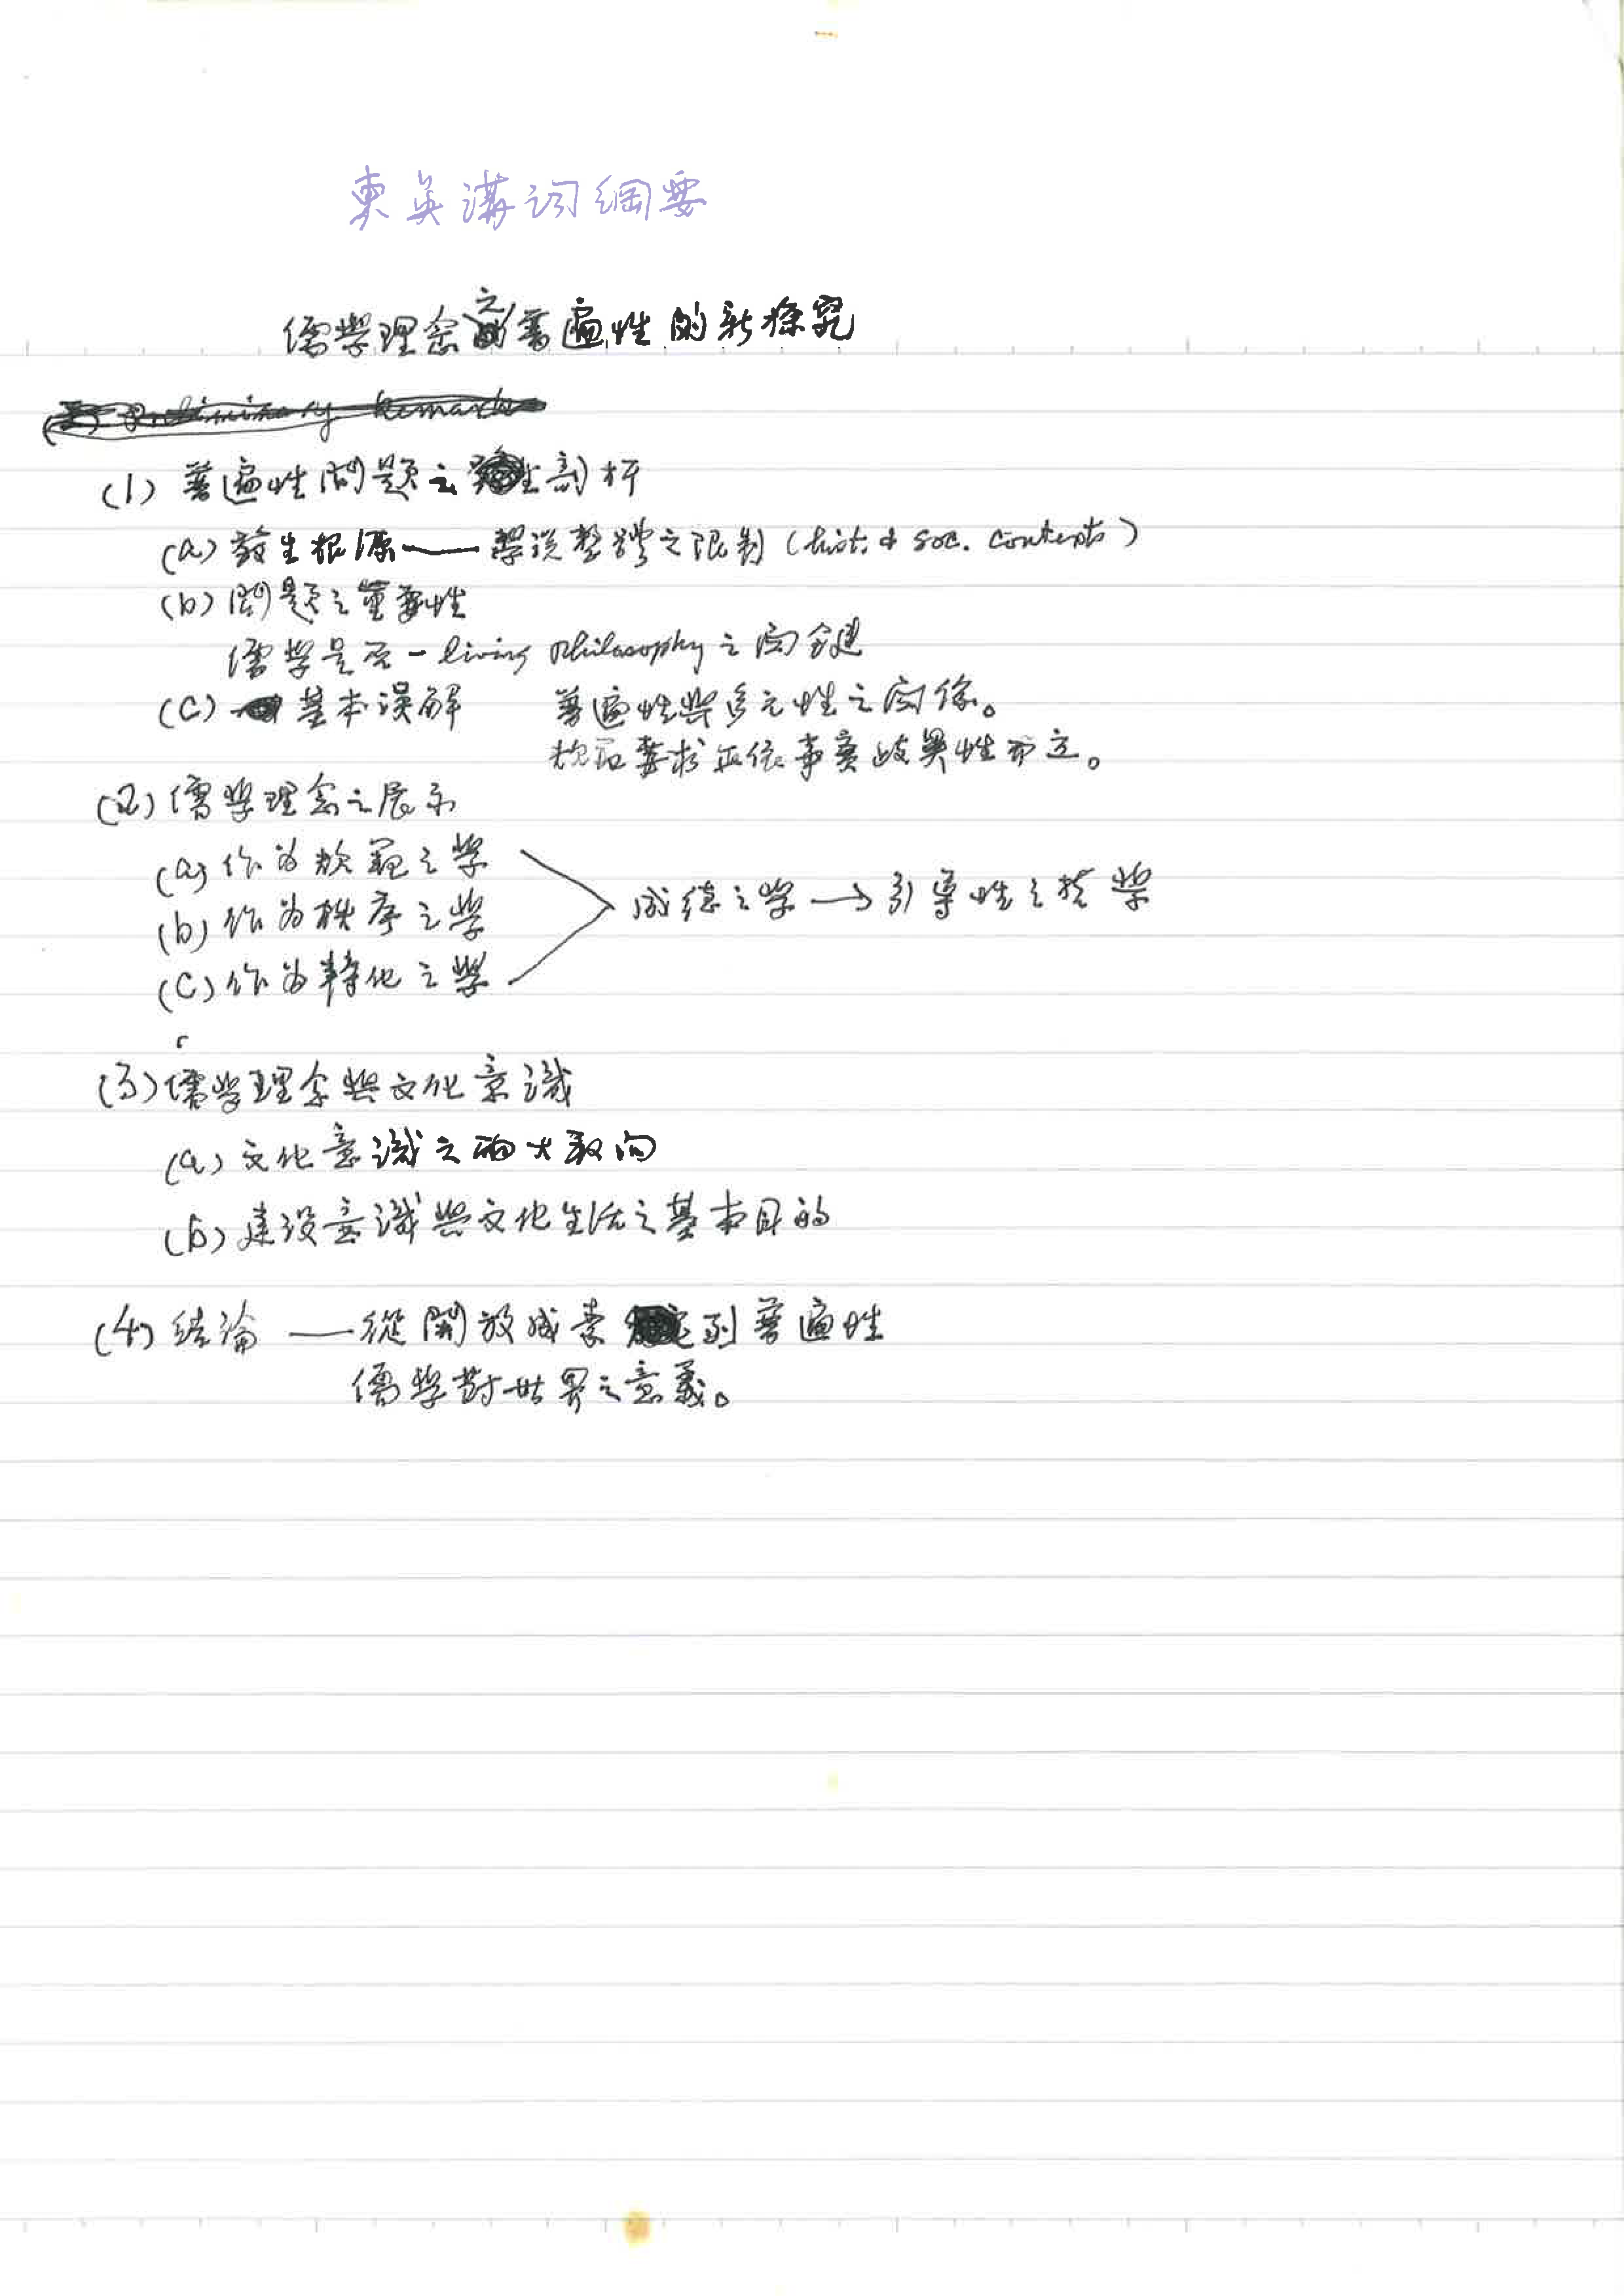 東英講詞綱要
儒學理念之普遍性的新探究
(1) 普遍性問題之剖析
(a) 發生根源——學說整體之限制 (hist. & soc. contents)
(b) 問題之重要性
儒學是否一 living philosophy 之關鍵
(c) 基本誤解 普遍性與多元性之關係。
規範要求正依事實歧異性而立。
(2) 儒學理念之展示
(a) 作為規範之學
(b) 作為秩序之學
(c) 作為轉化之學
成德之學 → 引導性之哲學
(3) 儒學理念與文化意識
(a) 文化意識之兩大取向
(b) 建設意識與文化生活之基本目的
(4) 結論 ——從開放成素到普遍性
儒學對世界之意義。